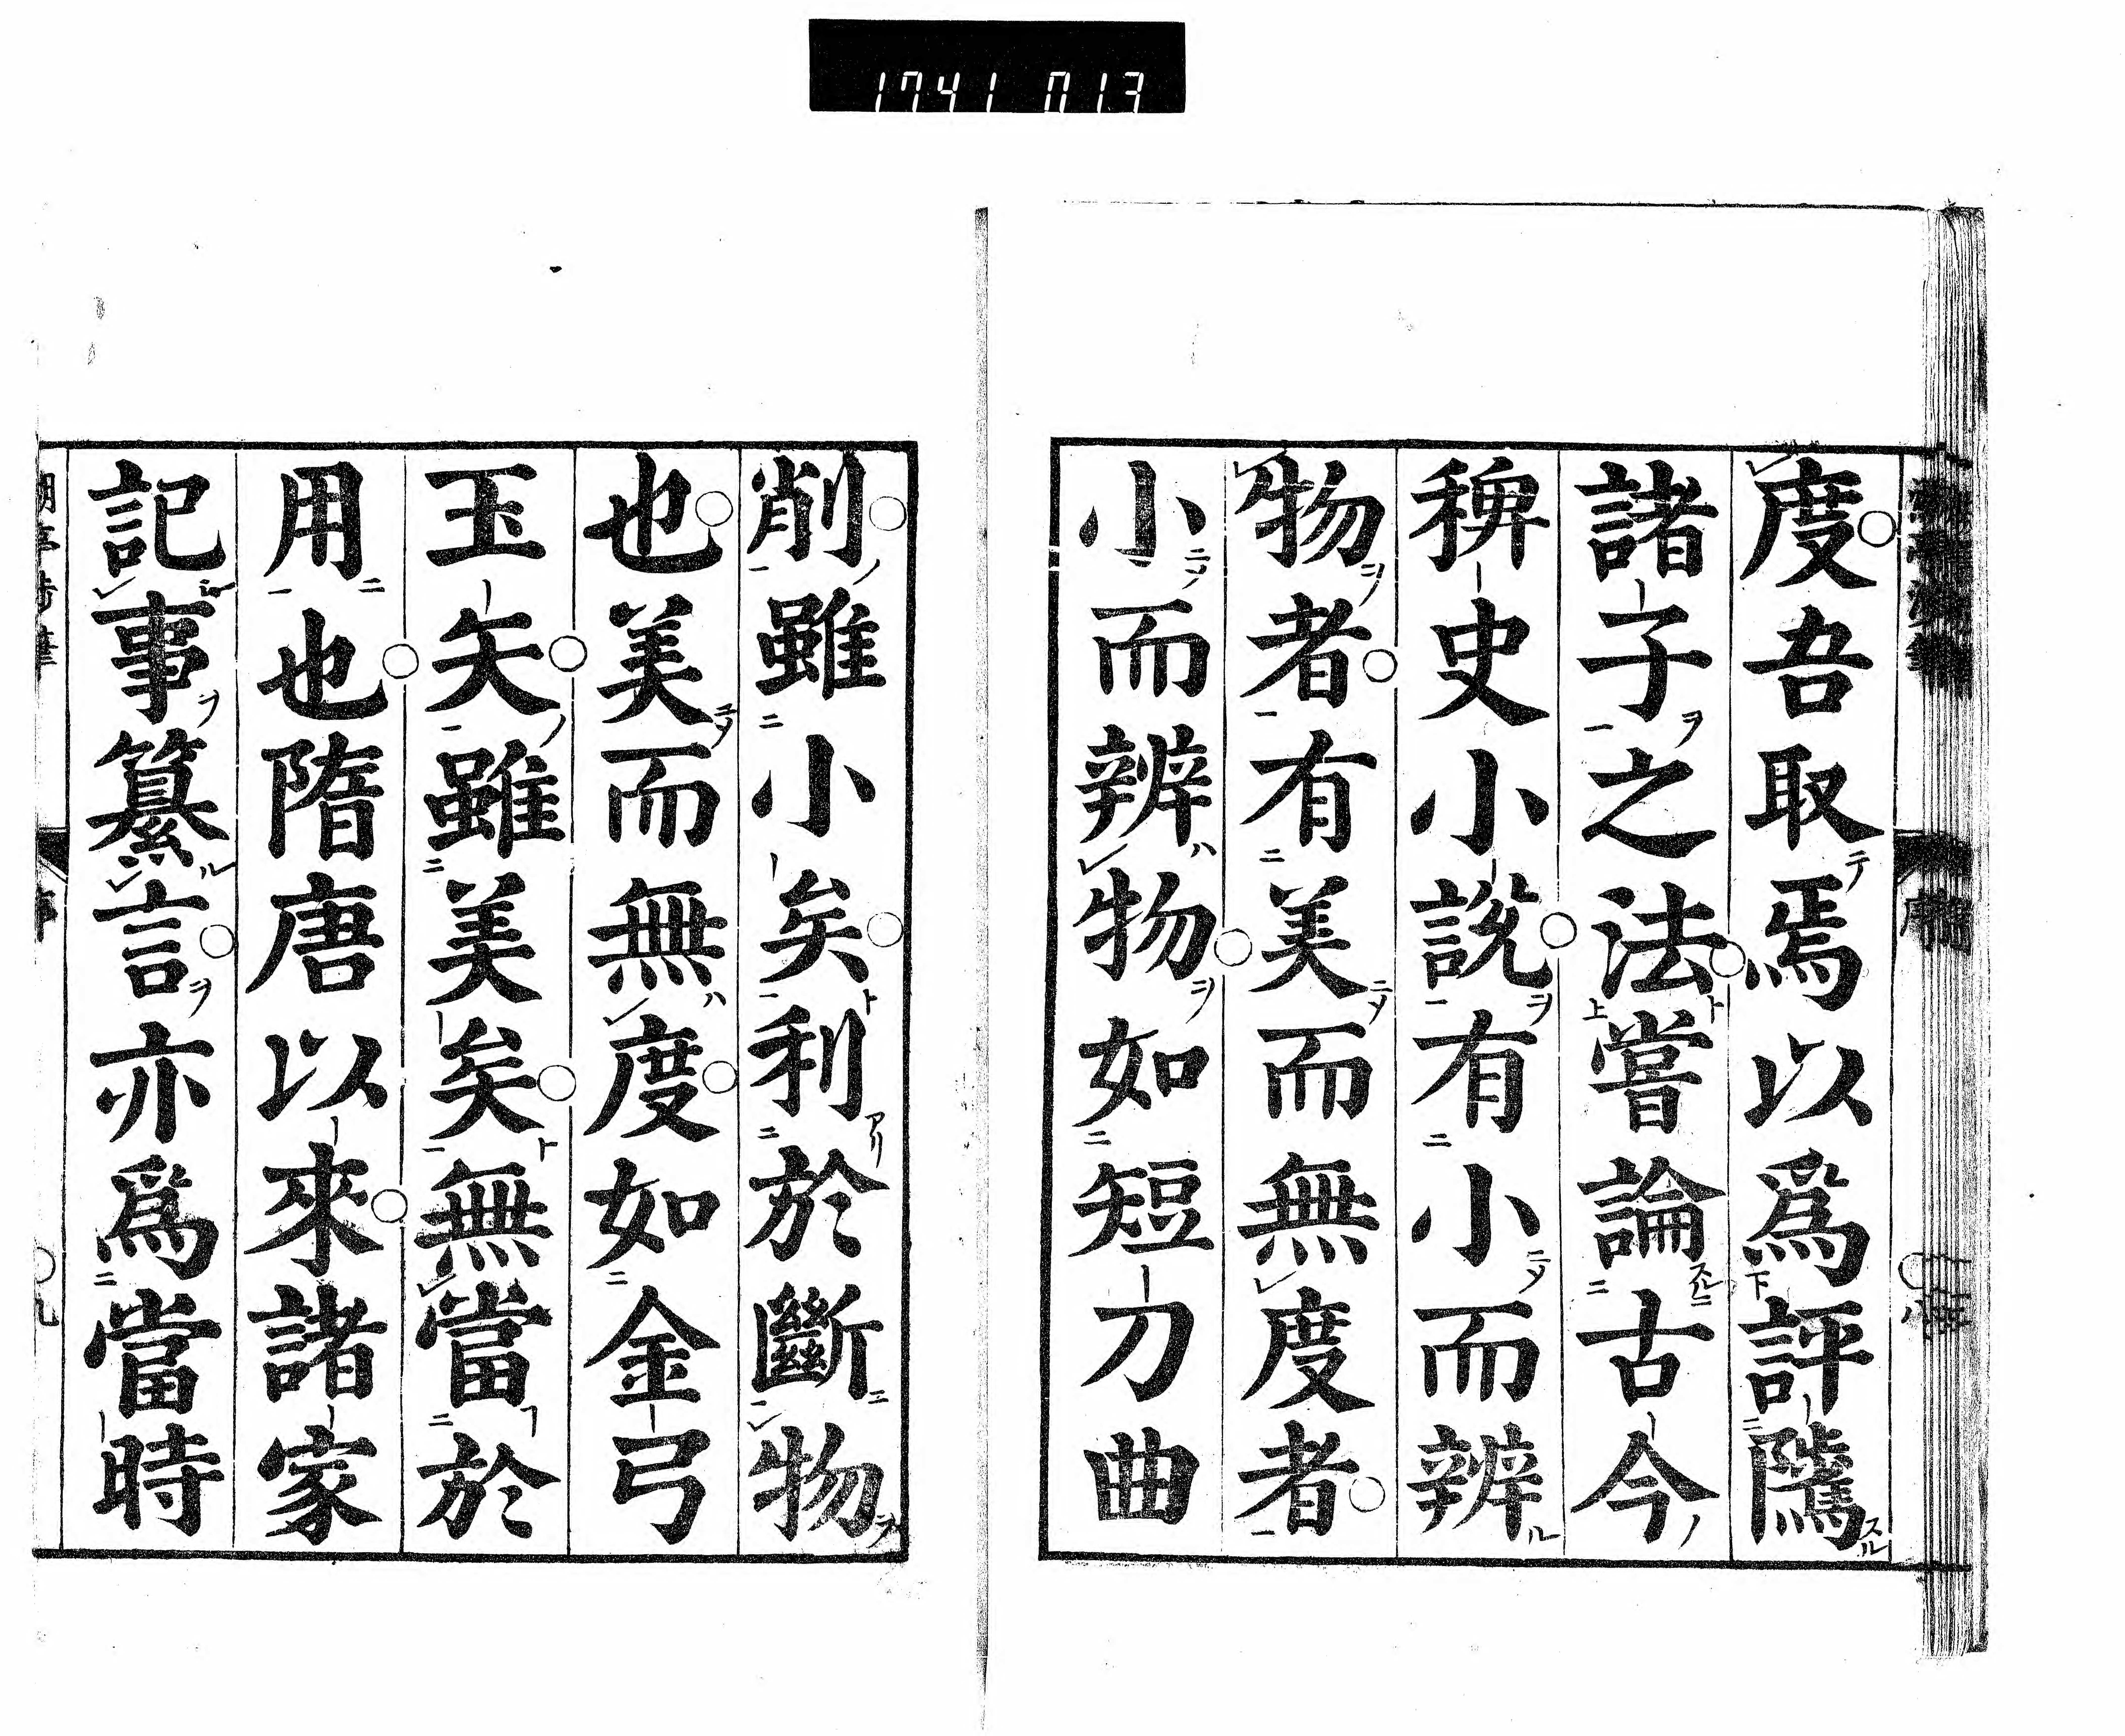 1741 013
度吾取焉以爲評隲
諸子之法嘗論古今
稗史小說有小而辨
物者有美而無度者
小而辨物如短刀曲
削雖小矣利於斷物
也美而無度如金弓
玉矢雖美矣無當於
用也隋唐以來諸家
記事纂言亦爲當時